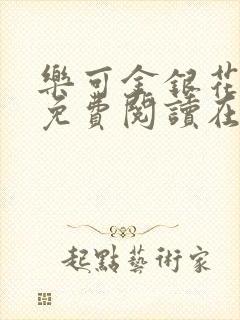 樂可金銀花
免費閱讀在
起點藝術家